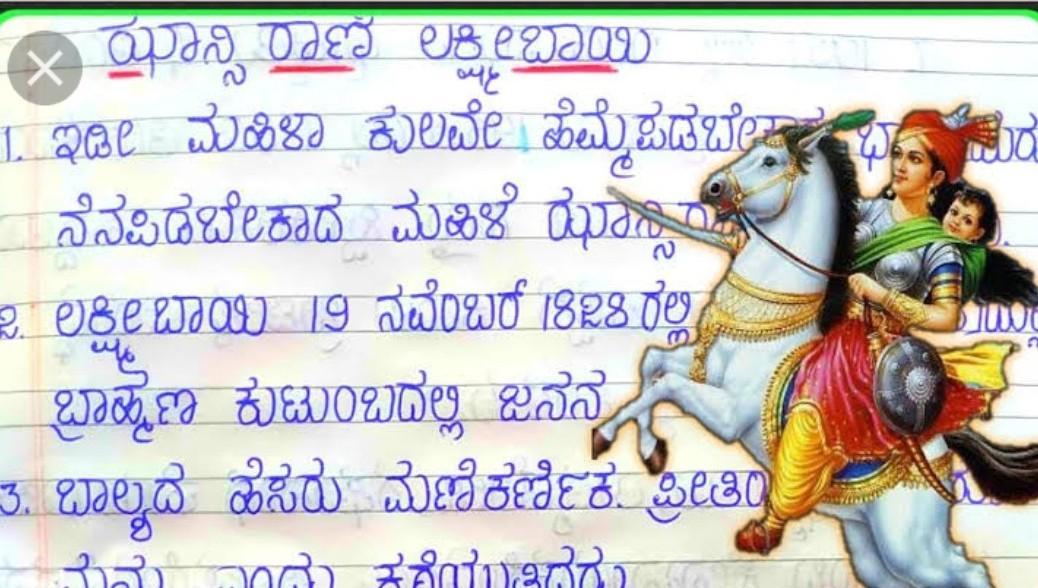 ಝಾನ್ಸಿ ರಾಣಿ ಲಕ್ಷ್ಮೀಬಾಯಿ
1. ಇಡೀ ಮಹಿಳಾ ಕುಲವೇ ಹೆಮ್ಮೆಪಡಬೇಕಾದ
ನೆನಪಿಡಬೇಕಾದ ಮಹಿಳೆ
2. ಲಕ್ಷ್ಮೀಬಾಯಿ 19 ನವೆಂಬರ್ 1828 ರಲ್ಲಿ
ಬ್ರಾಹ್ಮಣ ಕುಟುಂಬದಲ್ಲಿ ಜನನ
3. ಬಾಲ್ಯದ ಹೆಸರು ಮಣಿಕರ್ಣಿಕ.
ಮನು ಎಂದು ಕರೆಯುತ್ತಿದ್ದರು